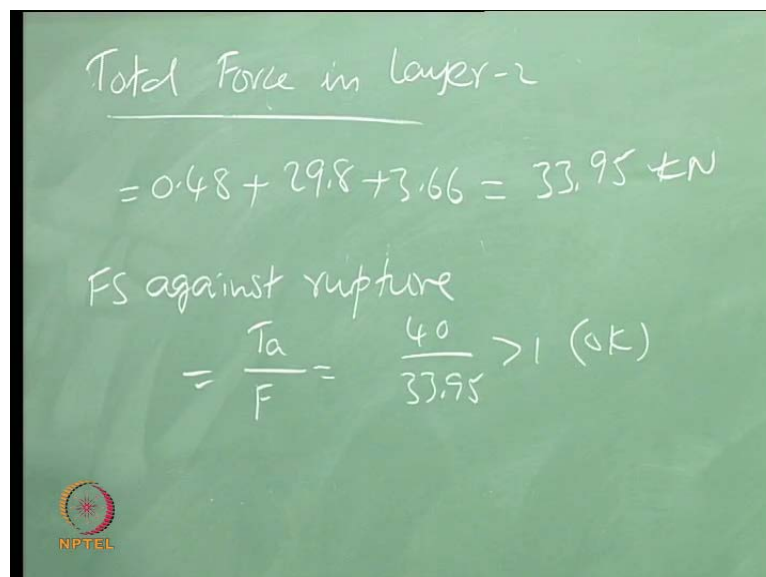 Total Force in Layer-2
= 0.48 + 29.8 + 3.66 = 33.95 kN
FS against rupture
= Ta / F = 40 / 33.95 > 1 (OK)
NPTEL